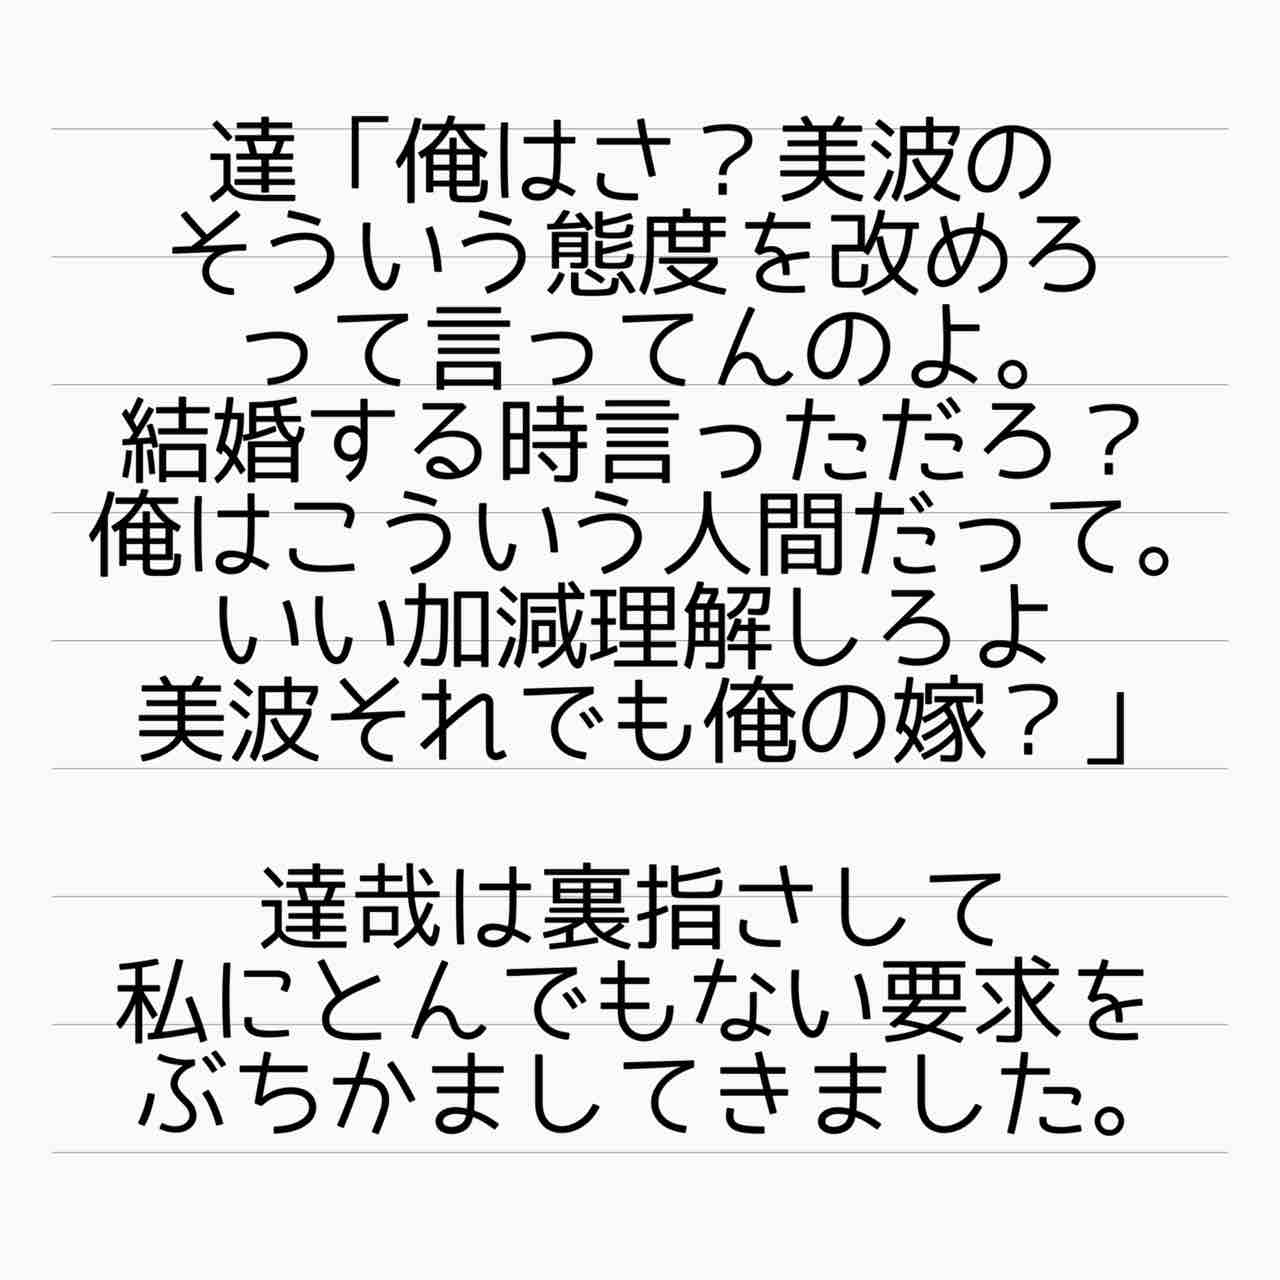 達「俺はさ？美波の
そういう態度を改めろ
って言ってんのよ。
結婚する時言っただろ？
俺はこういう人間だって。
いい加減理解しろよ
美波それでも俺の嫁？」
達哉は裏指さして
私にとんでもない要求を
ぶちかましてきました。